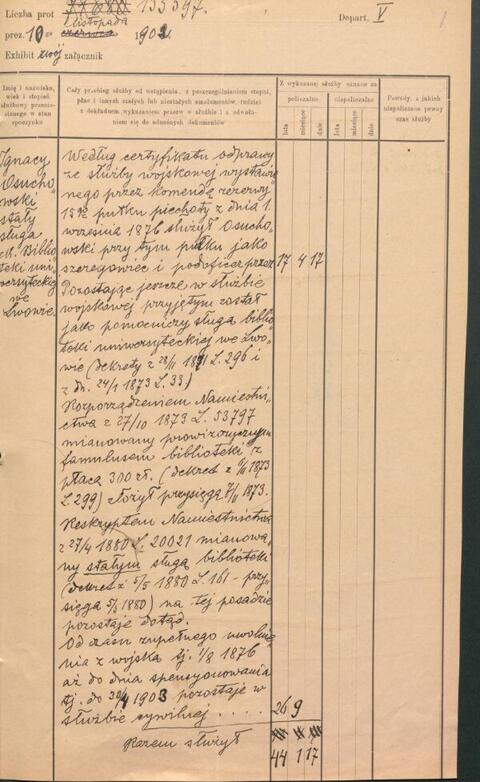 Liczba prot 77880 135597.
Depart. V
prez. 10go listopada czerwca 1902
Exhibit swój załącznik
Imię i nazwisko, wiek i stopień służbowy przeniesionego w stan spoczynku
Cały przebieg służby od wstąpienia, z poszczególnieniem stopni, płac i innych stałych lub niestałych emolumentów, tudzież z dokładnem wykazaniem przerw w służbie i z odwołaniem się do odnośnych dokumentów
Z wykazanej służby oznacza się
policzalne
niepoliczalne
lata miesiące dnie
lata miesiące dnie
Powody, z jakich niepoliczono pewnej czas służby
Ignacy
Osucho
wski
stały
sługa
c.k. Biblio
teki uni
wersyteckiej
we
Lwowie.
Według certyfikatu odprawy
ze służby wojskowej wystawio
nego przez komendę rezerwy
15go pułku piechoty z dnia 1.
września 1876 służył Osucho
wski przy tym pułku jako
szeregowiec i podoficer przez 17 4 17
Pozostając jeszcze w służbie
wojskowej przyjętym został
jako pomocniczy sługa biblio
teki uniwersyteckiej we Lwo
wie (dekrety z 28/11 1871 L. 296 i
z dn. 24/1 1873 L. 33)
Rozporządzeniem Namiestni
ctwa z 27/10 1873 L. 53797
mianowany prowizorycznym
famulusem biblioteki z
płacą 300 zł. (dekret z 6/11 1873
L. 299) złożył przysięgę 7/11 1873.
Reskryptem Namiestnictwa
z 27/4 1880 L. 20021 mianowa
ny stałym sługą biblioteki
(dekret z 5/5 1880 L. 161 – przy
sięga 5/5 1880) na tej posadzie
pozostaje dotąd.
Od czasu zupełnego uwolnie
nia z wojska tj. 1/8 1876
aż do dnia spensyonowania
tj. do 30/4 1903 pozostaje w
służbie cywilnej .... 26 9
Razem służył 44 1 17